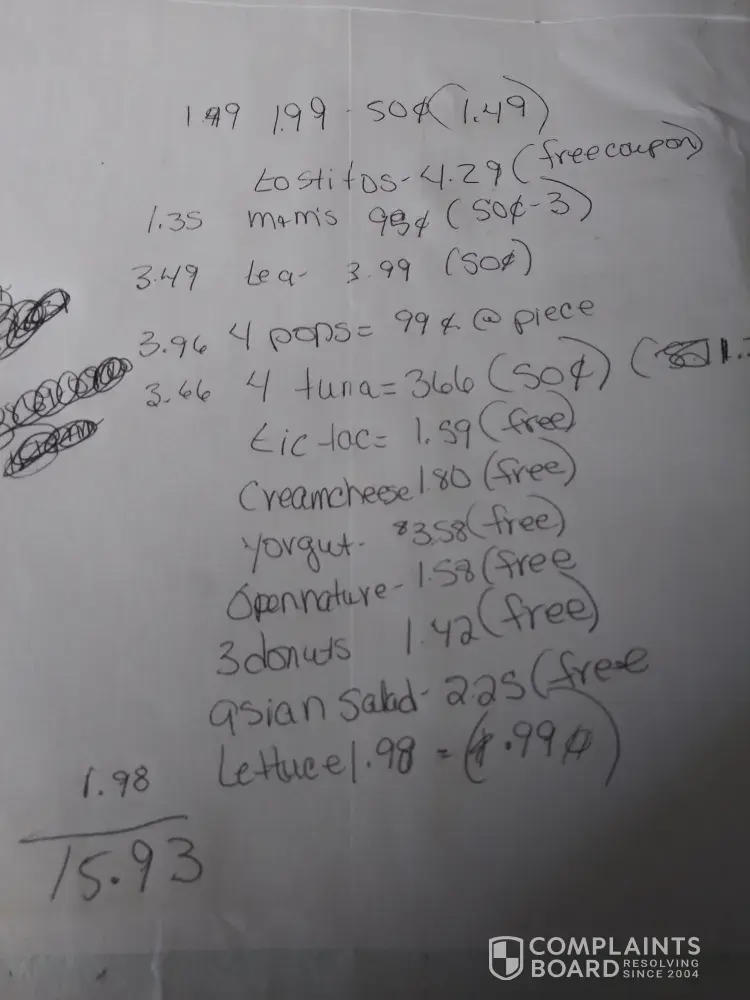 1.49 1.99 - 50¢ (1.49)
tostitos - 4.29 (free coupon)
1.35 m+m's 95¢ (50¢-3)
3.49 tea- 3.99 (50¢)
3.96 4 pops = 99¢ @ piece
3.66 4 tuna = 366 (50¢) (
tic-tac = 1.59 (free)
Creamcheese 1.80 (free)
yorgut - 3.58 (free)
Opennature - 1.58 (free
3 donuts 1.42 (free)
asian salad - 2.25 (free
1.98 Lettuce 1.98 = (.99¢)
15.93
COMPLAINTS
BOARD RESOLVING
SINCE 2004